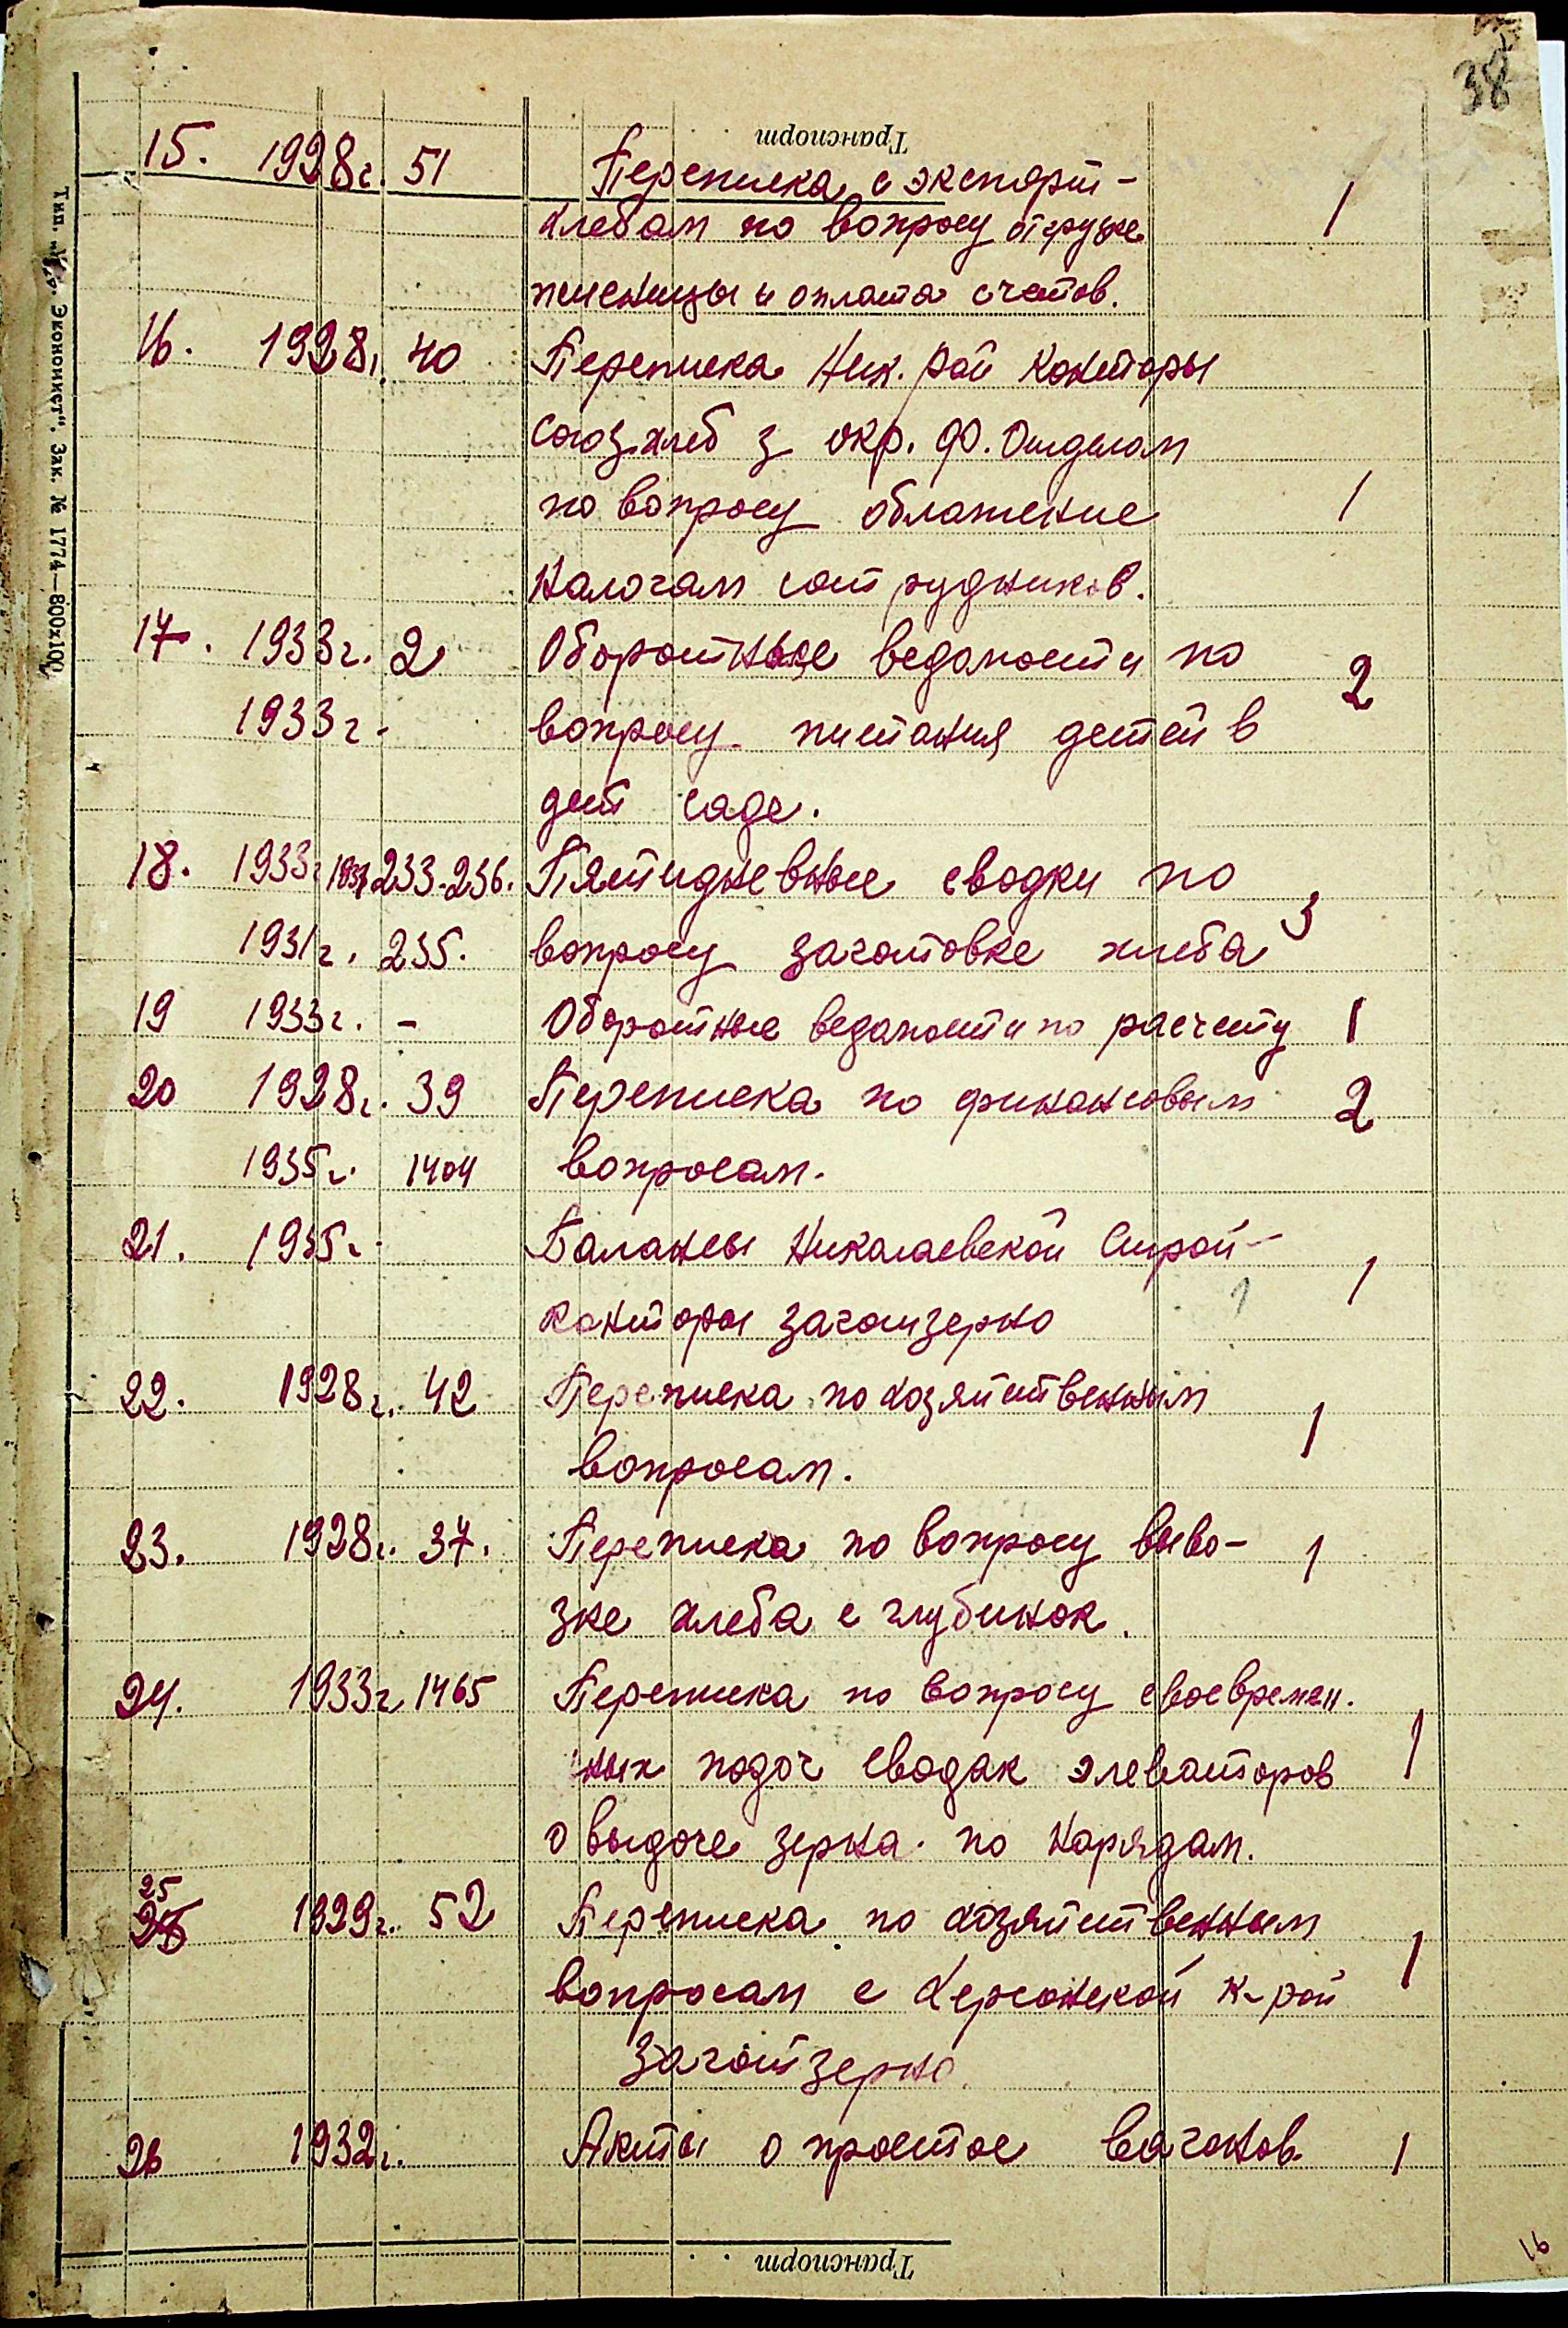 38
Транспорт
15. 1928г. 51 Переписка с экспорт-
хлебом по вопросу отгрузке 1
пшеницы и оплата счетов.
16. 1928г. 40 Переписка Ник. рай конторы
Союзхлеб з окр. Ф. Отделом
по вопросу обложение 1
налогам сотрудников.
17. 1933г. 2 Оборотные ведомости по 2
1933г. вопросу питания детей в
дет саде.
18. 1933г 1937 233-236. Пятидневные сводки по 3
1931г. 235. вопросу заготовке хлеба
19 1933г. - Оборотные ведомости по расчету 1
20 1928г. 39 Переписка по финансовым 2
1935г. 1404 вопросам.
21. 1935г. Балансы Николаевской Строй- 1
конторы заготзерно 1
22. 1928г. 42 Переписка по хозяйственным
вопросам. 1
23. 1928г. 37. Переписка по вопросу выво- 1
зке хлеба с глубинок.
24. 1933г 1465 Переписка по вопросу своевремен.
ных подач сводак элеваторов 1
о выдаче зерна по нарядам.
25
1929г. 52 Переписка по хозяйственным
вопросам с Херсонской к-рой 1
Заготзерно.
26 1932г. Акты о простое вагонов. 1
Транспорт
16
Экономист". Зак. № 1774—800х100